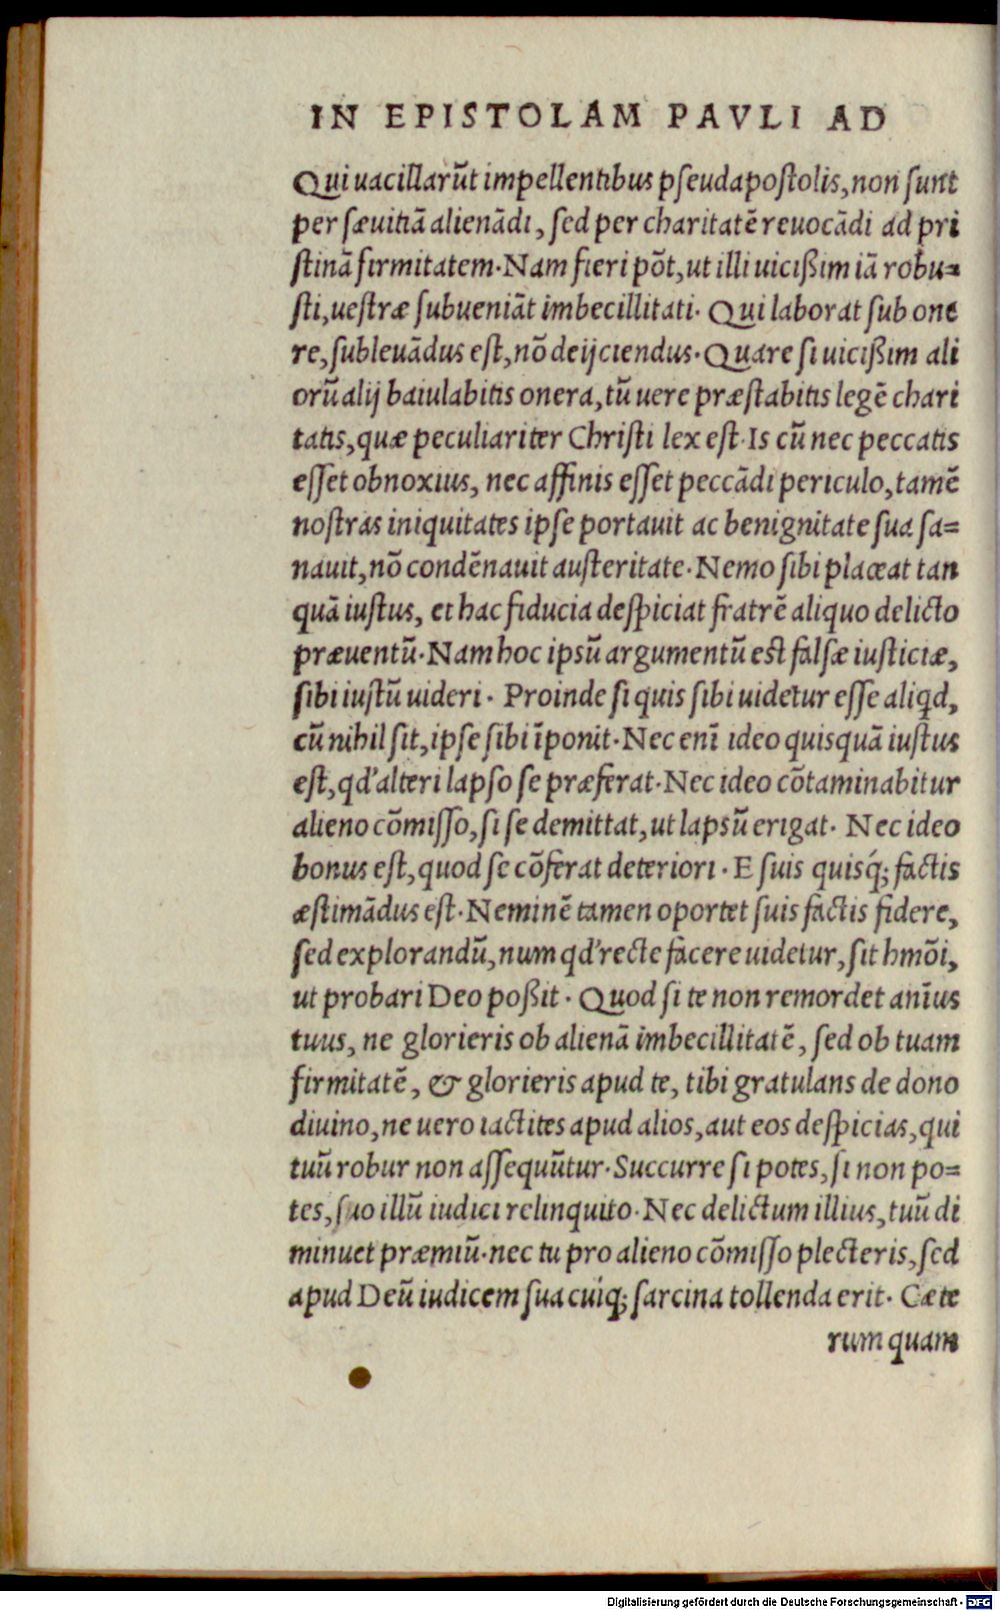 IN EPISTOLAM PAVLI AD
Qui uacillarũt impellentibus pseudapostolis, non sunt
per sæuitiã alienãdi, sed per charitatẽ reuocãdi ad pri
stinã firmitatem. Nam fieri põt, ut illi uicißim iã robu=
sti, uestræ subueniãt imbecillitati. Qui laborat sub one
re, subleuãdus est, nõ deijciendus. Quare si uicißim ali
orũ alij baiulabitis onera, tũ uere præstabitis legẽ chari
tatis, quæ peculiariter Christi lex est. Is cũ nec peccatis
esset obnoxius, nec affinis esset peccãdi periculo, tamẽ
nostras iniquitates ipse portauit ac benignitate sua sa=
nauit, nõ condẽnauit austeritate. Nemo sibi placeat tan
quã iustus, et hac fiducia despiciat fratrẽ aliquo delicto
præuentũ. Nam hoc ipsũ argumentũ est falsæ iusticiæ,
sibi iustũ uideri. Proinde si quis sibi uidetur esse aliqd,
cũ nihil sit, ipse sibi ĩponit. Nec enĩ ideo quisquã iustus
est, qd' alteri lapso se præferat. Nec ideo cõtaminabitur
alieno cõmisso, si se demittat, ut lapsũ erigat. Nec ideo
bonus est, quod se cõferat deteriori. E suis quisq́; factis
æstimãdus est. Neminẽ tamen oportet suis factis fidere,
sed explorandũ, num qd' recte facere uidetur, sit hmõi,
ut probari Deo poßit. Quod si te non remordet anĩus
tuus, ne glorieris ob alienã imbecillitatẽ, sed ob tuam
firmitatẽ, & glorieris apud te, tibi gratulans de dono
diuino, ne uero iactites apud alios, aut eos despicias, qui
tuũ robur non assequũtur. Succurre si potes, si non po=
tes, suo illũ iudici relinquito. Nec delictum illius, tuũ di
minuet præmiũ. nec tu pro alieno cõmisso plecteris, sed
apud Deũ iudicem sua cuiq́; sarcina tollenda erit. Cæte
rum quam
Digitalisierung gefördert durch die Deutsche Forschungsgemeinschaft - DFG